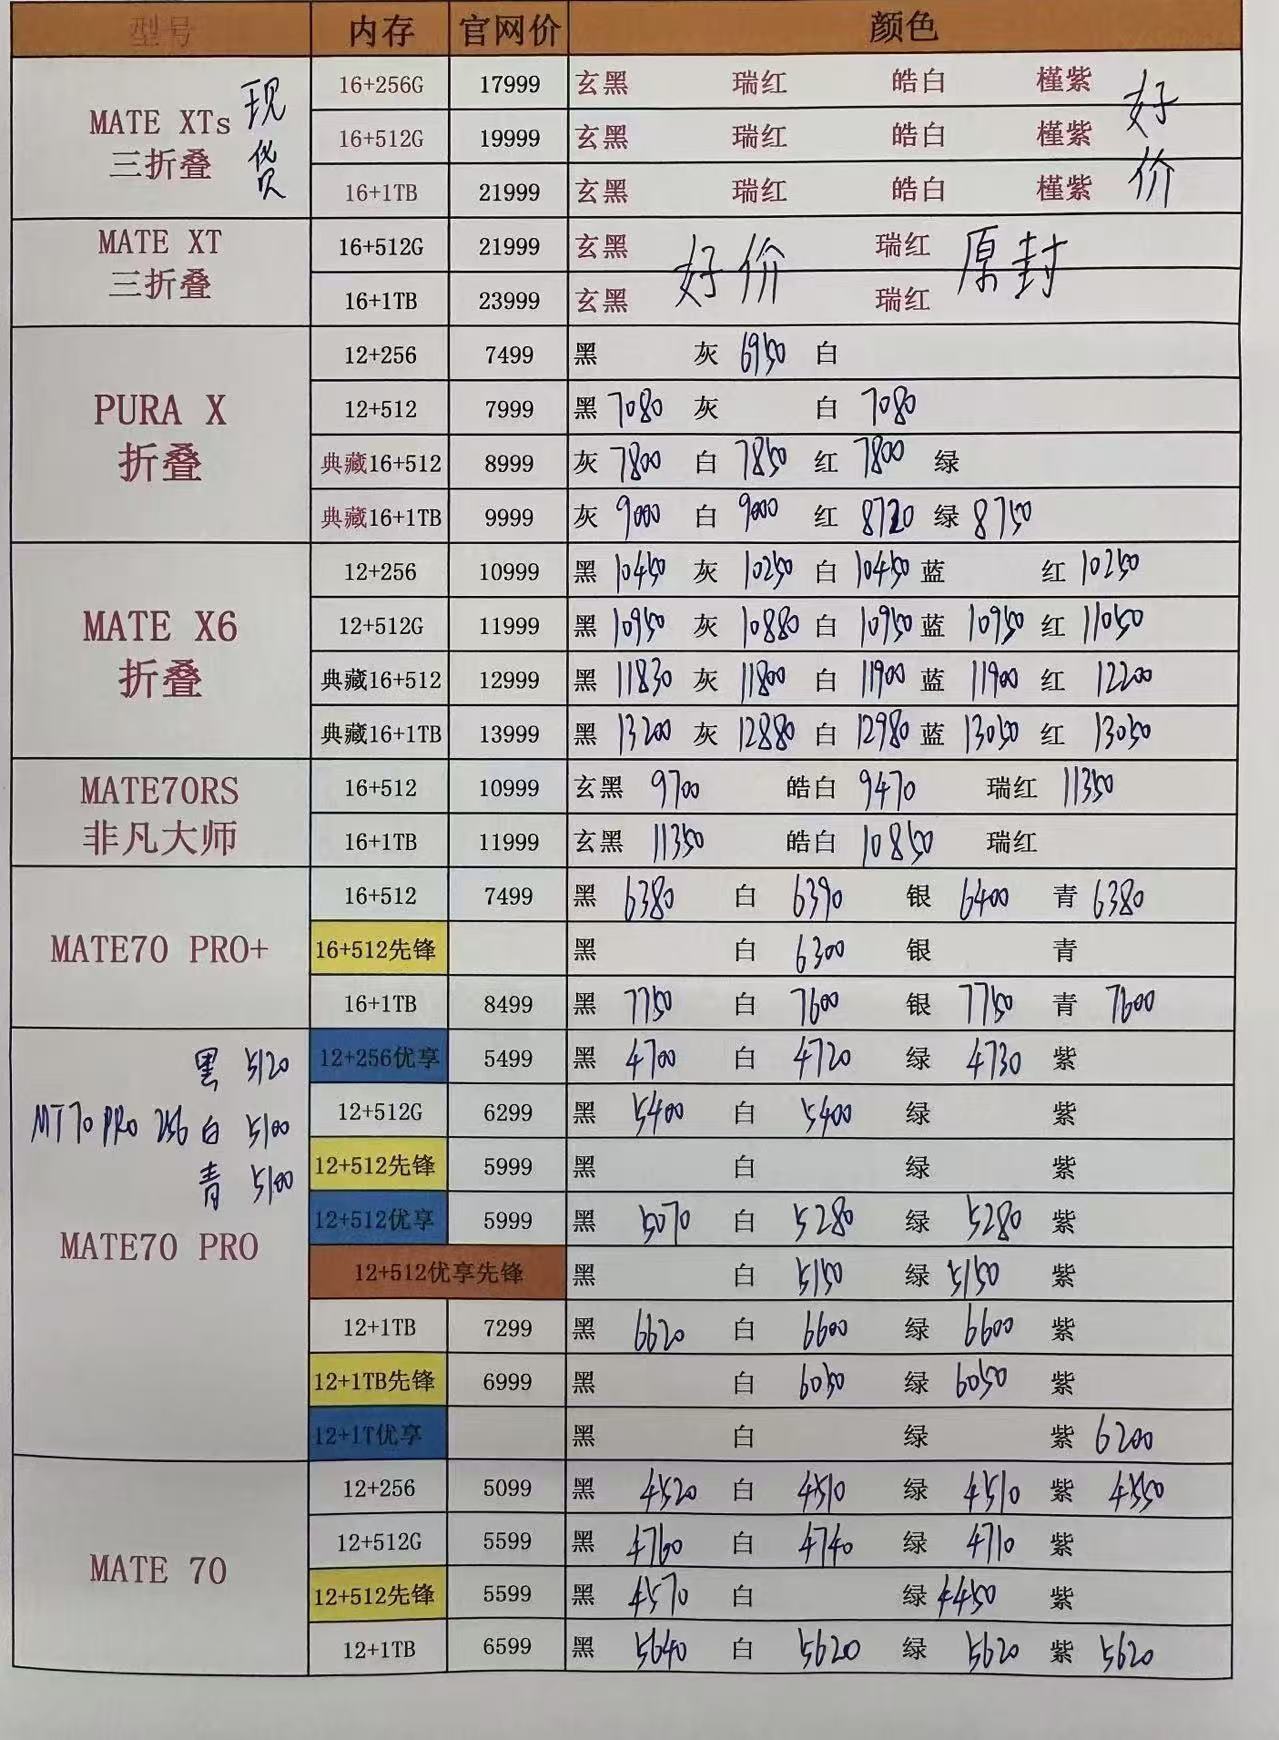 型号 内存 官网价 颜色
MATE XTs 三折叠 现货
16+256G 17999 玄黑 瑞红 皓白 槿紫
16+512G 19999 玄黑 瑞红 皓白 槿紫
16+1TB 21999 玄黑 瑞红 皓白 槿紫
好价
MATE XT 三折叠
16+512G 21999 玄黑 瑞红
16+1TB 23999 玄黑 瑞红
好价 原封
PURA X 折叠
12+256 7499 黑 灰 6950 白
12+512 7999 黑 7080 灰 白 7080
典藏16+512 8999 灰 7800 白 7850 红 7800 绿
典藏16+1TB 9999 灰 9000 白 9000 红 8720 绿 8750
MATE X6 折叠
12+256 10999 黑 10450 灰 10250 白 10450 蓝 红 10250
12+512G 11999 黑 10950 灰 10880 白 10950 蓝 10950 红 11050
典藏16+512 12999 黑 11830 灰 11800 白 11900 蓝 11900 红 12200
典藏16+1TB 13999 黑 13200 灰 12880 白 12980 蓝 13050 红 13050
MATE70RS 非凡大师
16+512 10999 玄黑 9700 皓白 9470 瑞红 11350
16+1TB 11999 玄黑 11350 皓白 10850 瑞红
MATE70 PRO+
16+512 7499 黑 6380 白 6390 银 6400 青 6380
16+512先锋 黑 白 6300 银 青
16+1TB 8499 黑 7750 白 7600 银 7750 青 7600
黑 5120
MT70 PRO 256 白 5100
青 5100
MATE70 PRO
12+256优享 5499 黑 4700 白 4720 绿 4730 紫
12+512G 6299 黑 5400 白 5400 绿 紫
12+512先锋 5999 黑 白 绿 紫
12+512优享 5999 黑 5070 白 5280 绿 5280 紫
12+512优享先锋 黑 白 5150 绿 5150 紫
12+1TB 7299 黑 6620 白 6600 绿 6600 紫
12+1TB先锋 6999 黑 白 6050 绿 6050 紫
12+1T优享 黑 白 绿 紫 6200
MATE 70
12+256 5099 黑 4520 白 4510 绿 4510 紫 4550
12+512G 5599 黑 4760 白 4740 绿 4710 紫
12+512先锋 5599 黑 4570 白 绿 4450 紫
12+1TB 6599 黑 5640 白 5620 绿 5620 紫 5620